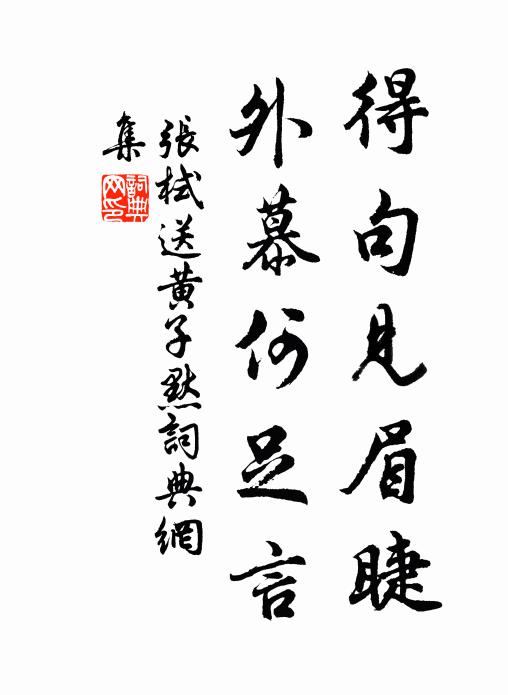 得句見眉睫
外慕何足言
張栻送黃子默詞典網
集
詞典
网印